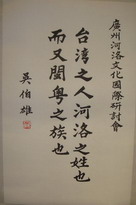 廣州河洛文化國際研討會
台湾之人河洛之姓也
而又閩粤之族也
吳伯雄